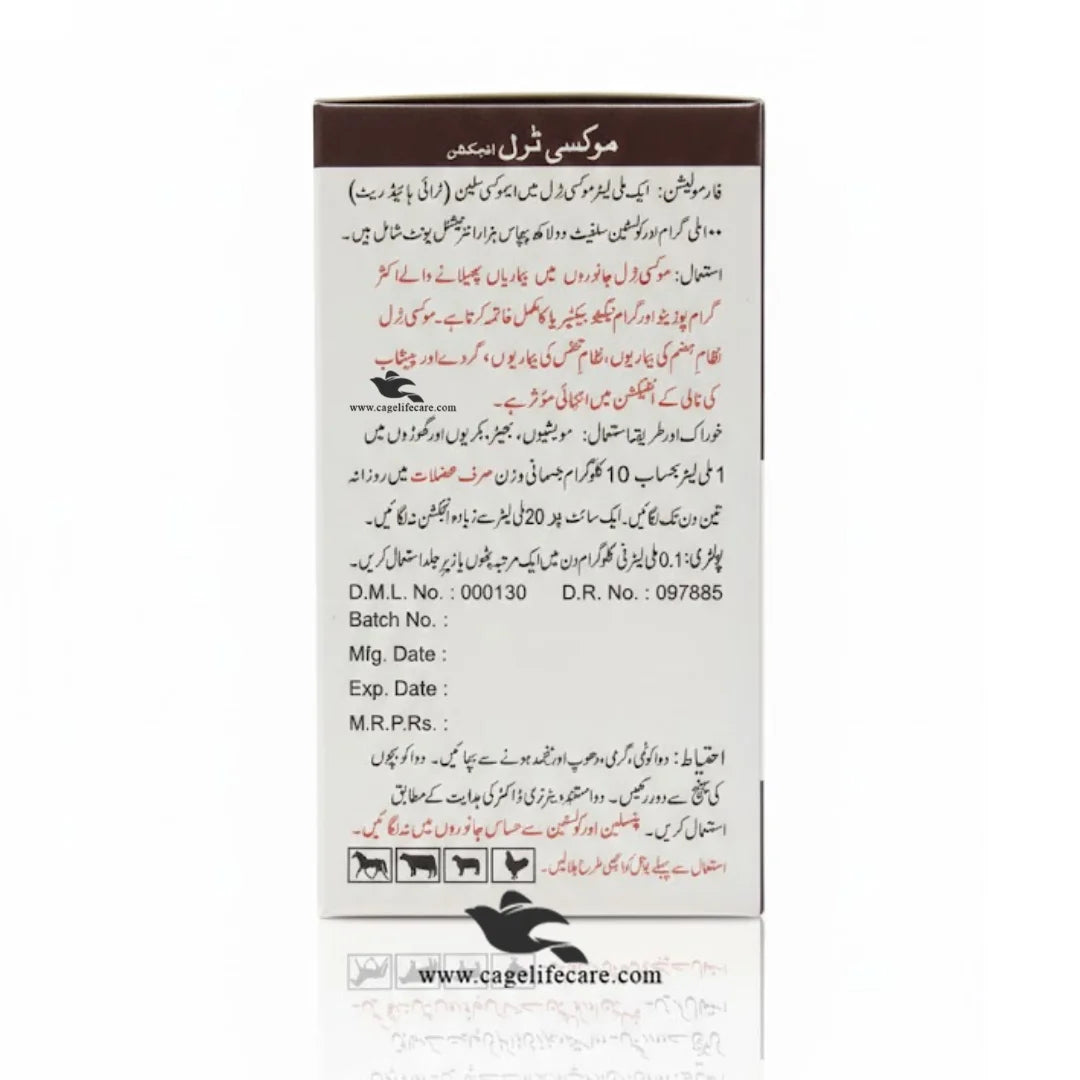 موکسی ٹرل انجکشن
فارمولیشن: ایک ملی لیٹر موکسی ٹرل میں ایموکسی سلین (ٹرائی ہائیڈریٹ)
۱۰۰ ملی گرام اور کولسٹین سلفیٹ دو لاکھ پچاس ہزار انٹرنیشنل یونٹ شامل ہیں۔
استعمال: موکسی ٹرل جانوروں میں بیماریاں پھیلانے والے اکثر
گرام پوزیٹو اور گرام نیگیٹو بیکٹیریا کا مکمل خاتمہ کرتا ہے۔ موکسی ٹرل
نظامِ ہضم کی بیماریوں، نظامِ تنفس کی بیماریوں، گردے اور پیشاب
کی نالی کے انفیکشن میں انتہائی مؤثر ہے۔
www.cagelifecare.com
خوراک اور طریقہ استعمال: مویشیوں، بھیڑ، بکریوں اور گھوڑوں میں
1 ملی لیٹر بحساب 10 کلوگرام جسمانی وزن صرف عضلات میں روزانہ
تین دن تک لگائیں۔ ایک سائٹ پر 20 ملی لیٹر سے زیادہ انجکشن نہ لگائیں۔
پولٹری: 0.1 ملی لیٹر فی کلوگرام دن میں ایک مرتبہ پٹھوں یا زیرِ جلد استعمال کریں۔
D.M.L. No. : 000130 D.R. No. : 097885
Batch No. :
Mfg. Date :
Exp. Date :
M.R.P.Rs. :
احتیاط: دوا کو نمی، گرمی، دھوپ اور منجمد ہونے سے بچائیں۔ دوا کو بچوں
کی پہنچ سے دور رکھیں۔ دوا مستند ویٹرنری ڈاکٹر کی ہدایت کے مطابق
استعمال کریں۔ پنسلین اور کولسٹین سے حساس جانوروں میں نہ لگائیں۔
استعمال سے پہلے بوتل کو اچھی طرح ہلا لیں۔
www.cagelifecare.com